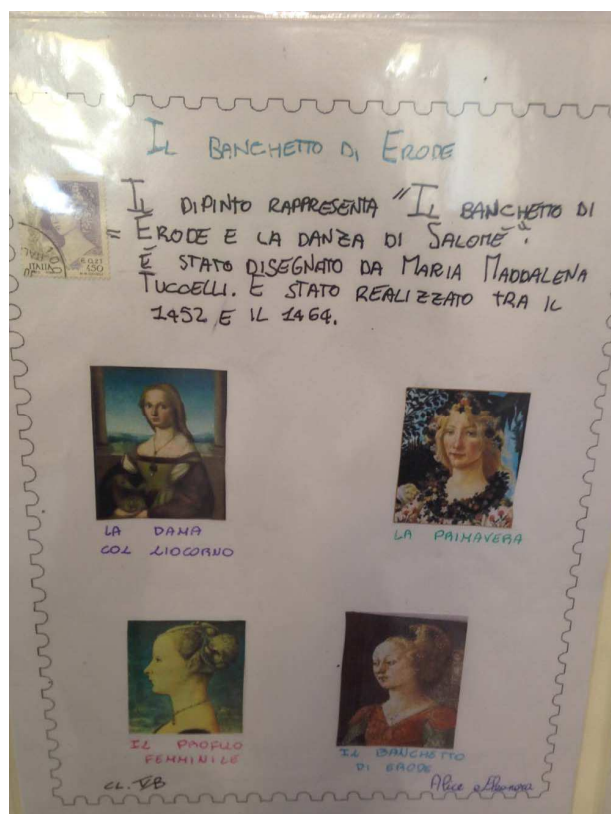 IL BANCHETTO DI ERODE
IL DIPINTO RAPPRESENTA "IL BANCHETTO DI
ERODE E LA DANZA DI SALOMÈ".
È STATO DISEGNATO DA MARIA MADDALENA
TUCCELLI. È STATO REALIZZATO TRA IL
1452 E IL 1464.
ITALIA
€ 0,23
450
LA DAMA
COL LIOCORNO
LA PRIMAVERA
IL PROFILO
FEMMINILE
IL BANCHETTO
DI ERODE
CL.
Alice e Eleonora